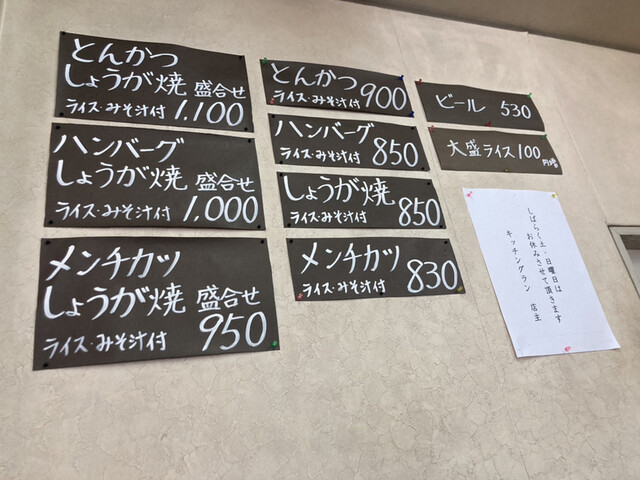 とんかつ
しょうが焼 盛合せ
ライス・みそ汁付 1,100
ハンバーグ
しょうが焼 盛合せ
ライス・みそ汁付 1,000
メンチカツ
しょうが焼 盛合せ
ライス・みそ汁付 950
とんかつ
ライス・みそ汁付 900
ハンバーグ
ライス・みそ汁付 850
しょうが焼
ライス・みそ汁付 850
メンチカツ
ライス・みそ汁付 830
ビール 530
大盛ライス 100
しばらく土・日曜日は
お休みさせて頂きます
キッチングラン 店主